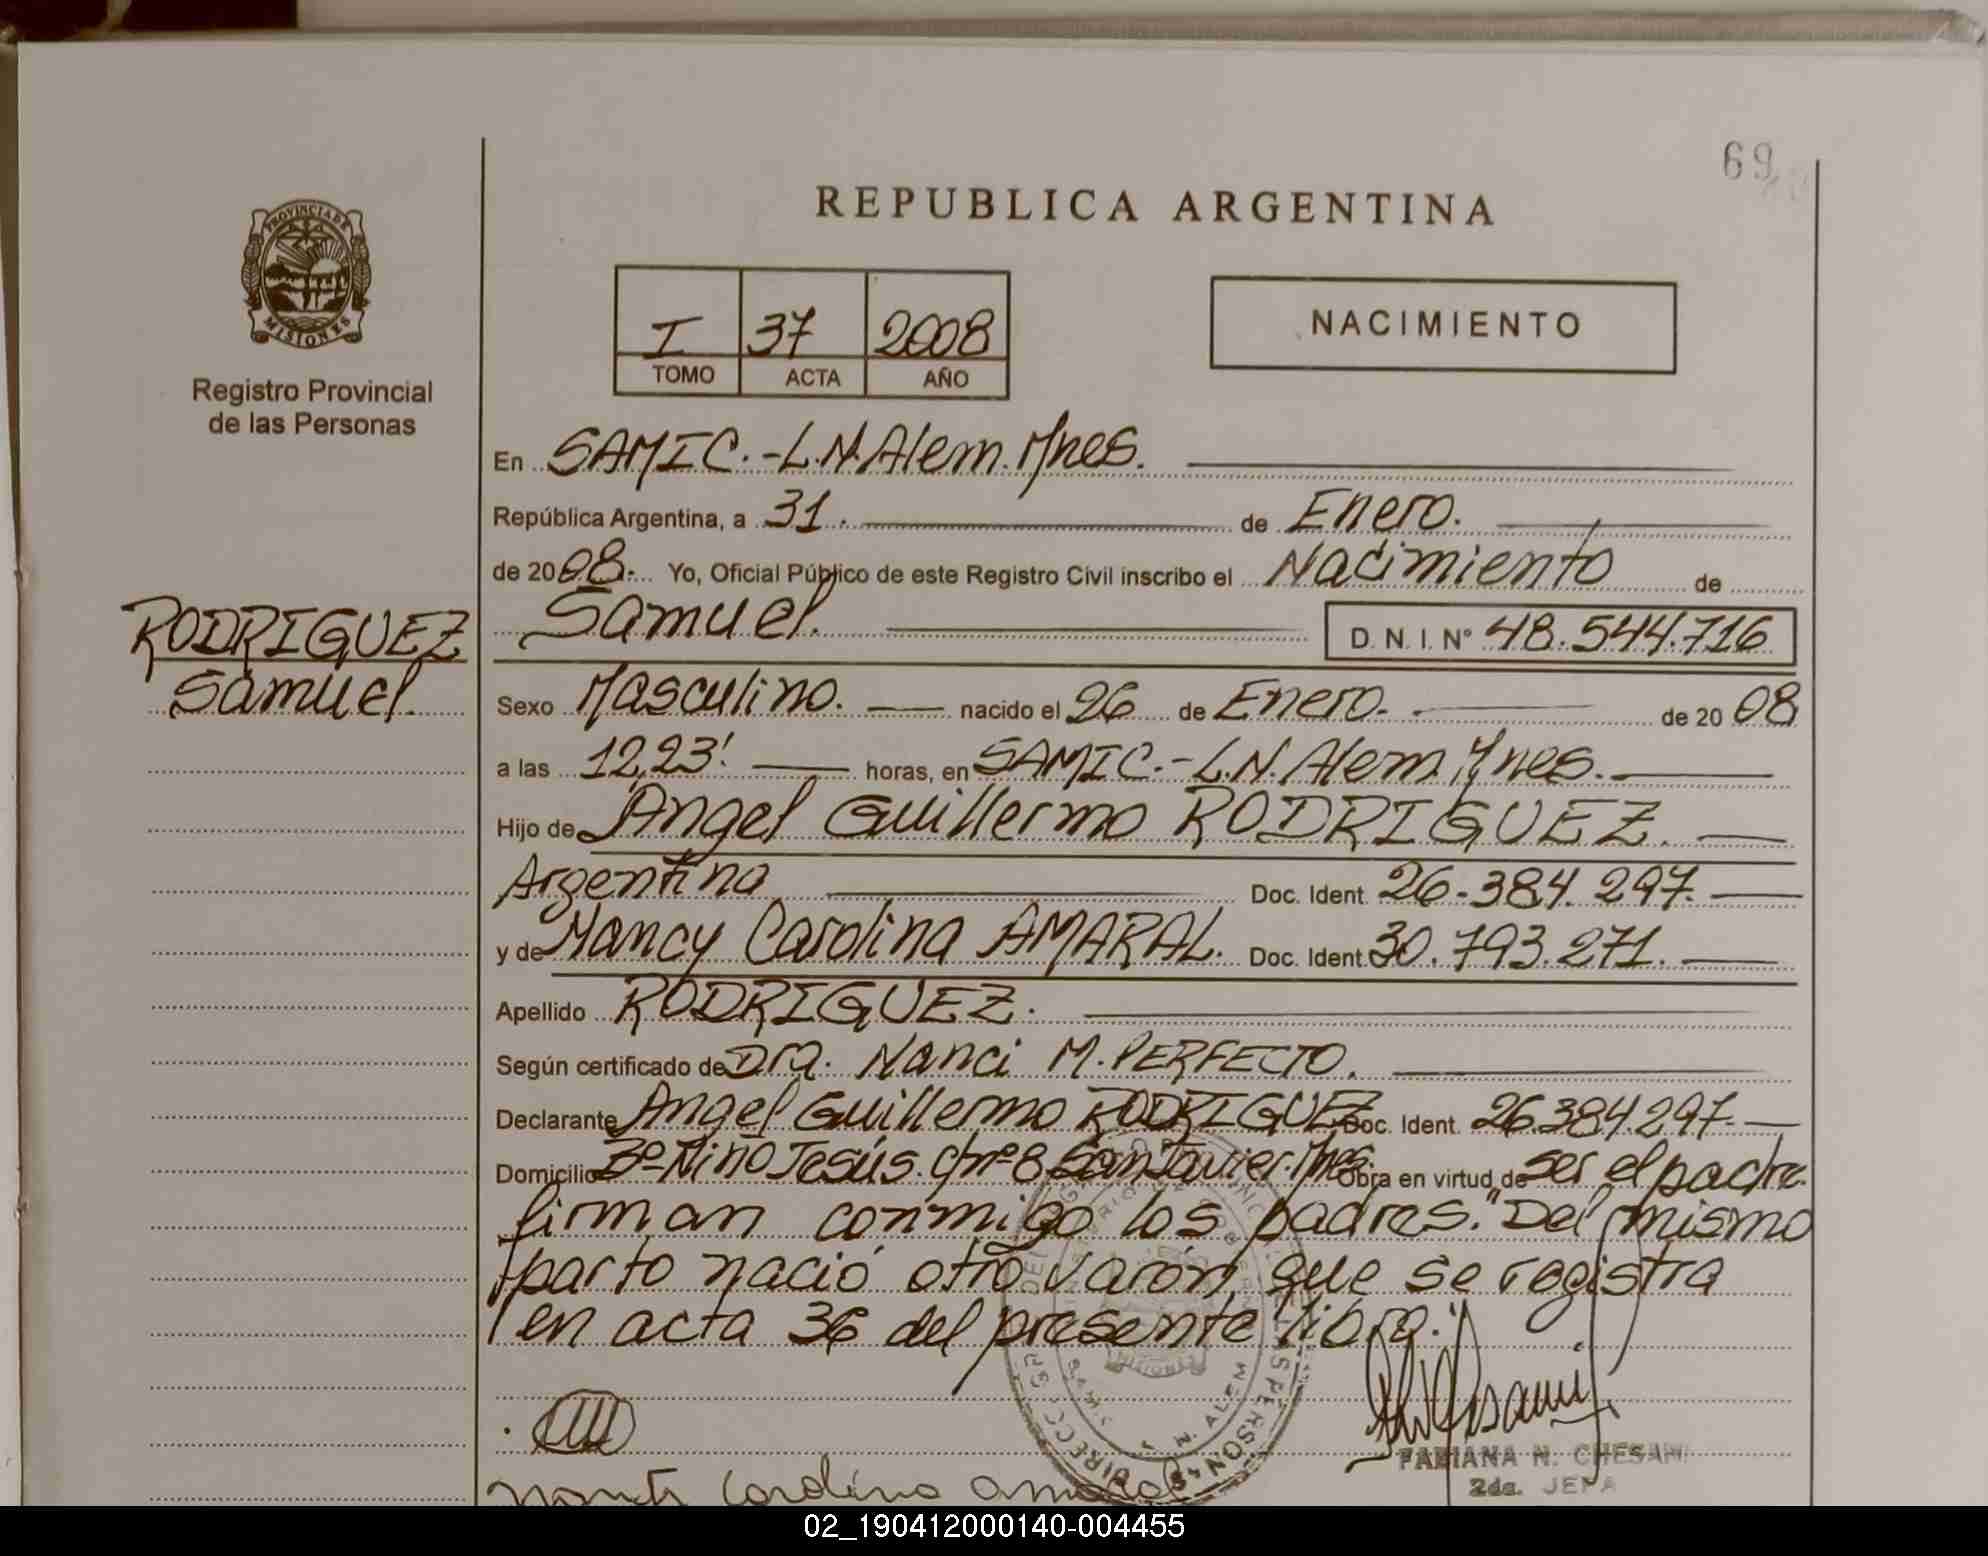 69
REPUBLICA ARGENTINA
PROVINCIA DE
MISIONES
Registro Provincial
de las Personas
I 37 2008
TOMO ACTA AÑO
NACIMIENTO
En SAMIC.-L.N.Alem.Mnes.
República Argentina, a 31. de Enero.
de 2008. Yo, Oficial Público de este Registro Civil inscribo el Nacimiento de
RODRIGUEZ
Samuel.
Samuel. D. N. I. Nº 48.544.716
Sexo Masculino. nacido el 26 de Enero. de 20 08
a las 12,23' horas, en SAMIC.-L.N.Alem.Mnes.
Hijo de Angel Guillermo RODRIGUEZ.
Argentina Doc. Ident. 26.384.297.
y de Nancy Carolina AMARAL. Doc. Ident. 30.793.271.
Apellido RODRIGUEZ.
Según certificado de Dra. Nanci M. PERFECTO.
Declarante Angel Guillermo RODRIGUEZ Doc. Ident. 26.384.297.
Domicilio Bº Niño Jesús. Cnº8 San Javier. Mnes. Obra en virtud de ser el padre.
firman conmigo los padres. "Del mismo
parto nació otro varón, que se registra
en acta 36 del presente libro."
FABIANA N. CHESANI
2da. JEFA
Carolina Amaral
02_190412000140-004455